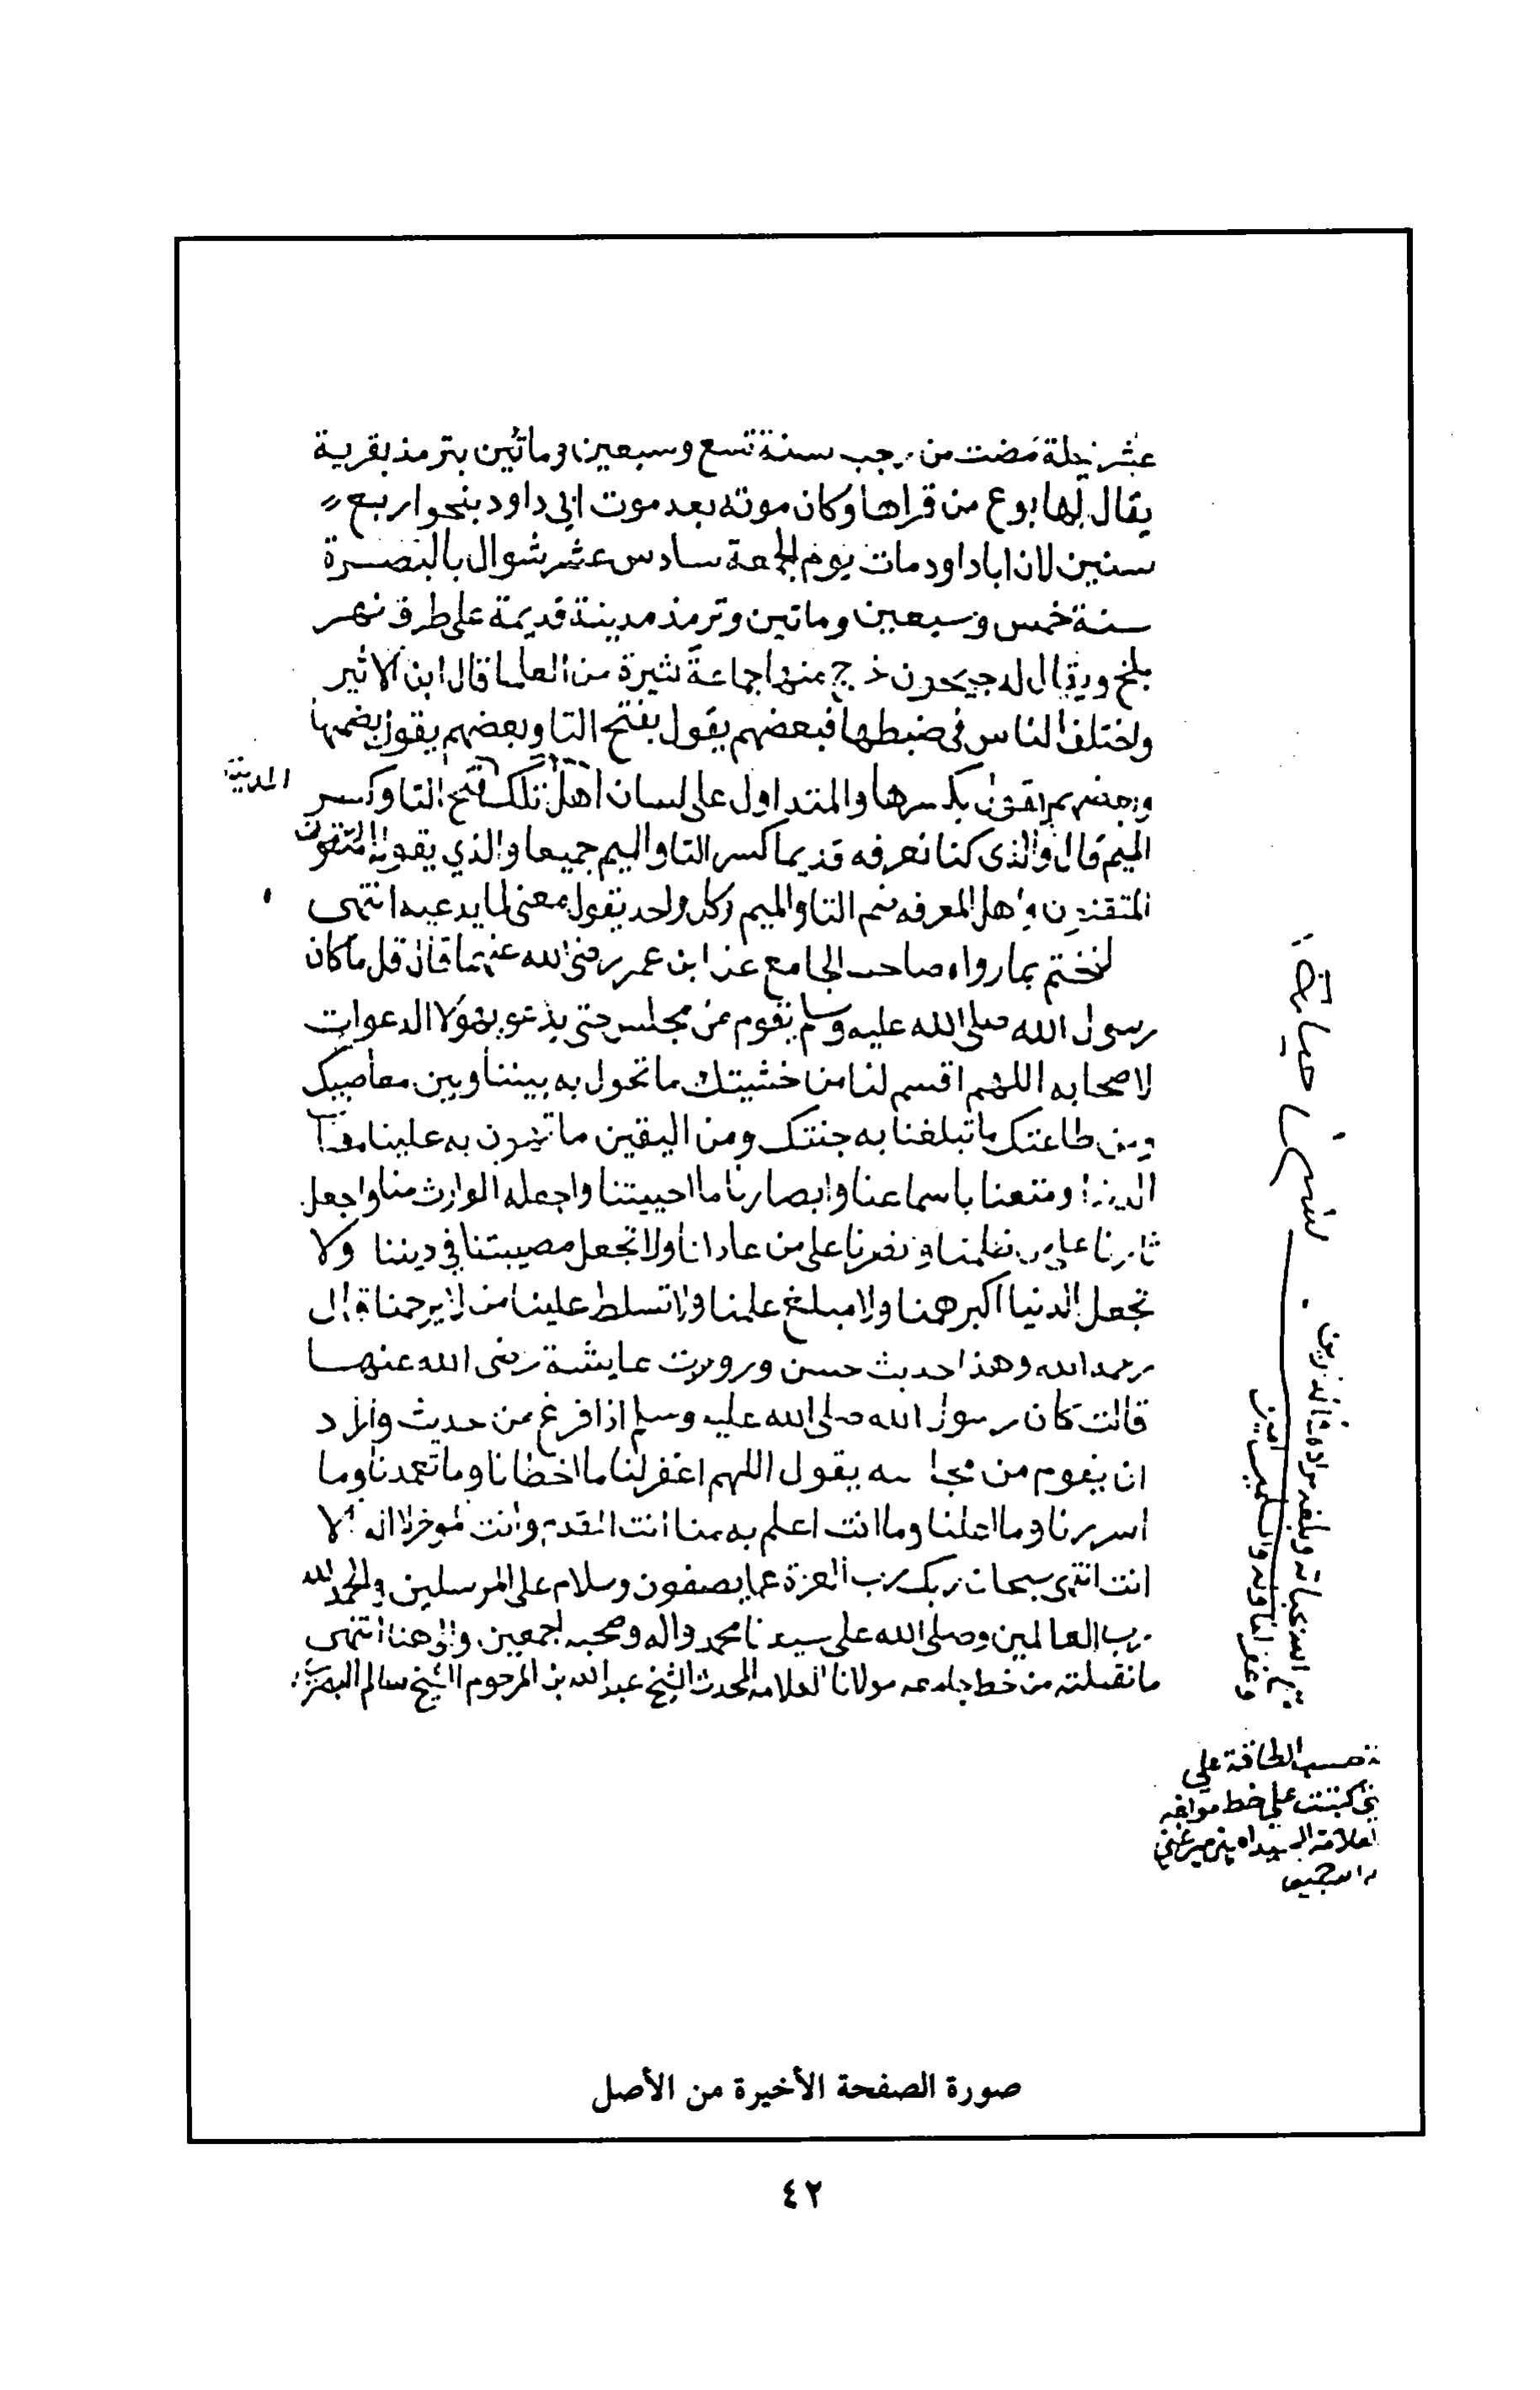 عشر ليلة مضت من رجب سنة تسع وسبعين وماتين بترمذ بقرية
يقال لها بوغ من قراها وكان موته بعد موت ابي داود بنحو اربع
سنين لان اباداود مات يوم الجمعة سادس عشر شوال بالبصرة
سنة خمس وسبعين وماتين وترمذ مدينة قديمة على طرف نهر
بلخ ويقال له جيحون خرج منها جماعة كثيرة من العلما قال ابن الاثير
واختلف الناس في ضبطها فبعضهم يقول بفتح التا وبعضهم يقول بضمها
وبعضهم يقول بكسرها والمتداول على لسان اهل تلك المدينة فتح التا وكسر
الميم قال والذى كنا نعرفه قديما كسر التا والميم جميعا والذي يقوله المتقون
المتقنون واهل المعرفه ضم التا والميم وكل واحد يقول معنى لما يدعيه انتهى
لنختم بما رواه صاحب الجامع عن ابن عمر رضى الله عنهما قال قل ما كان
رسول الله صلى الله عليه وسلم يقوم من مجلس حتى يدعو بهولا الدعوات
لاصحابه اللهم اقسم لنا من خشيتك ما تحول به بيننا وبين معاصيك
ومن طاعتك ما تبلغنا به جنتك ومن اليقين ما تهون به علينا
الدنيا ومتعنا باسماعنا وابصارنا ما احييتنا واجعله الوارث منا واجعل
ثارنا على من ظلمنا وانصرنا على من عادانا ولا تجعل مصيبتنا في ديننا ولا
تجعل الدنيا اكبر همنا ولا مبلغ علمنا ولا تسلط علينا من لا يرحمنا قال
رحمه الله وهذا حديث حسن ورويت عايشة رضى الله عنها
قالت كان رسول الله صلى الله عليه وسلم اذا فرغ من حديث واراد
ان يقوم من مجلسه يقول اللهم اغفر لنا ما اخطانا وما تعمدنا وما
اسررنا وما اعلنا وما انت اعلم به منا انت المقدم وانت الموخر لا اله الا
انت انتهى سبحان ربك رب العزة عما يصفون وسلام على المرسلين والحمد لله
رب العالمين وصلى الله على سيدنا محمد واله وصحبه اجمعين والى هنا انتهى
ما نقلته من خط جامعه مولانا العلامه المحدث الشيخ عبد الله بن المرحوم الشيخ سالم البصري
حسب الطاقة على
كتبت على خط مولفه
صورة الصفحة الأخيرة من الأصل
٤٢